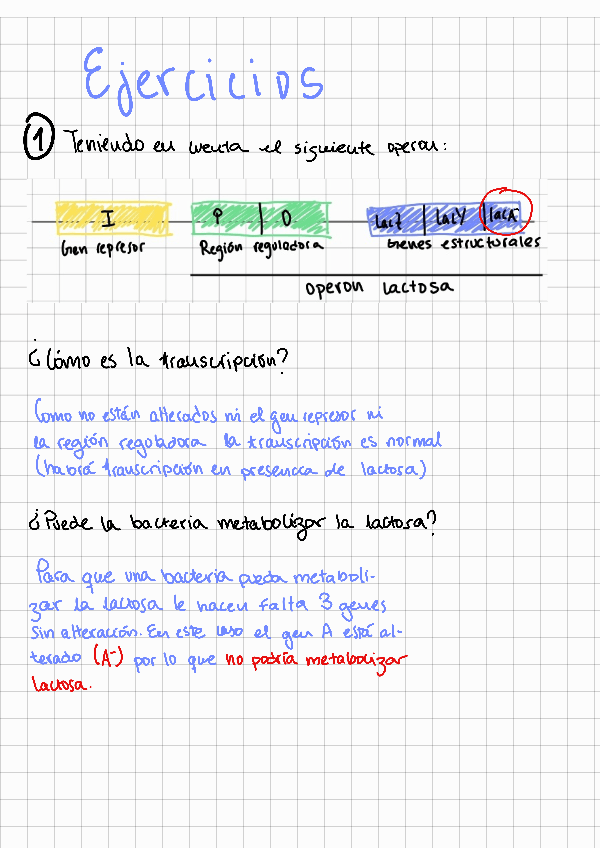 Ejercicios
1 Teniendo en cuenta el siguiente operon:
I P O LacZ LacY lacA⁻
Gen represor Región reguladora Genes estructurales
operon lactosa
¿Cómo es la transcripción?
Como no están alterados ni el gen represor ni
la región reguladora la transcripción es normal
(habrá transcripción en presencia de lactosa)
¿Puede la bacteria metabolizar la lactosa?
Para que una bacteria pueda metaboli-
zar la lactosa le hacen falta 3 genes
sin alteración. En este caso el gen A está al-
terado (A⁻) por lo que no podría metabolizar
lactosa.